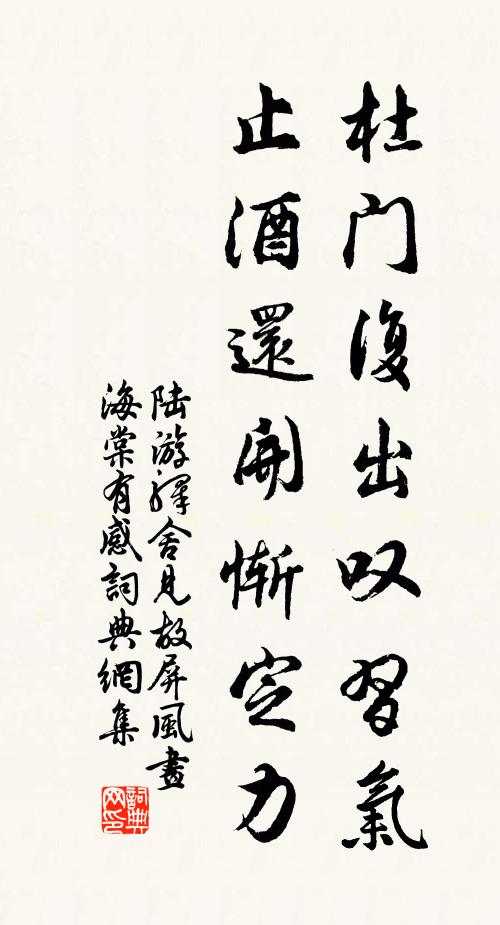 杜门復出叹習氣
止酒還開慚定力
陆游驛舍見故屏風畫
海棠有感詞典網集
詞典
网印